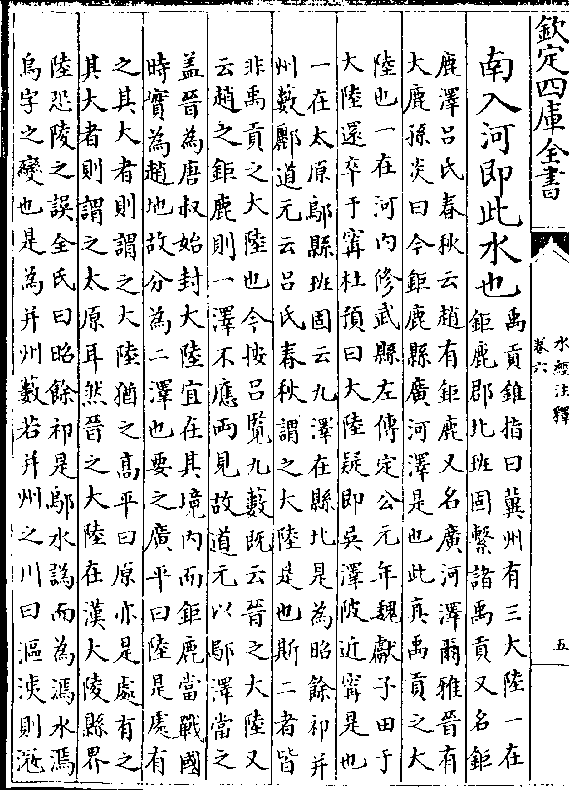 欽定四庫全書
水經注釋
卷六
五
南入河即此水也
禹貢錐指曰冀州有三大陸一在
鉅鹿郡北班固繫諸禹貢又名鉅
鹿澤吕氏春秋云趙有鉅鹿又名廣河澤爾雅晉有
大鹿孫炎曰今鉅鹿縣廣河澤是也此真禹貢之大
陸也一在河内修武縣左傳定公元年魏獻子田于
大陸還卒于甯杜預曰大陸疑即吳澤陂近甯是也
一在太原鄔縣班固云九澤在縣北是為昭餘祁并
州藪酈道元云吕氏春秋謂之大陸是也斯二者皆
非禹貢之大陸也今按吕覽九藪既云晉之大陸又
云趙之鉅鹿則一澤不應兩見故道元以鄔澤當之
盖晉為唐叔始封大陸宜在其境内而鉅鹿當戰國
時實為趙地故分為二澤也要之廣平曰陸是處有
之其大者則謂之大陸猶之髙平曰原亦是處有之
其大者則謂之太原耳然晉之大陸在漢大陵縣界
陸恐陵之誤全氏曰昭餘祁是鄔水譌而為漹水漹
烏字之變也是為并州藪若并州之川曰漚洟則㴲